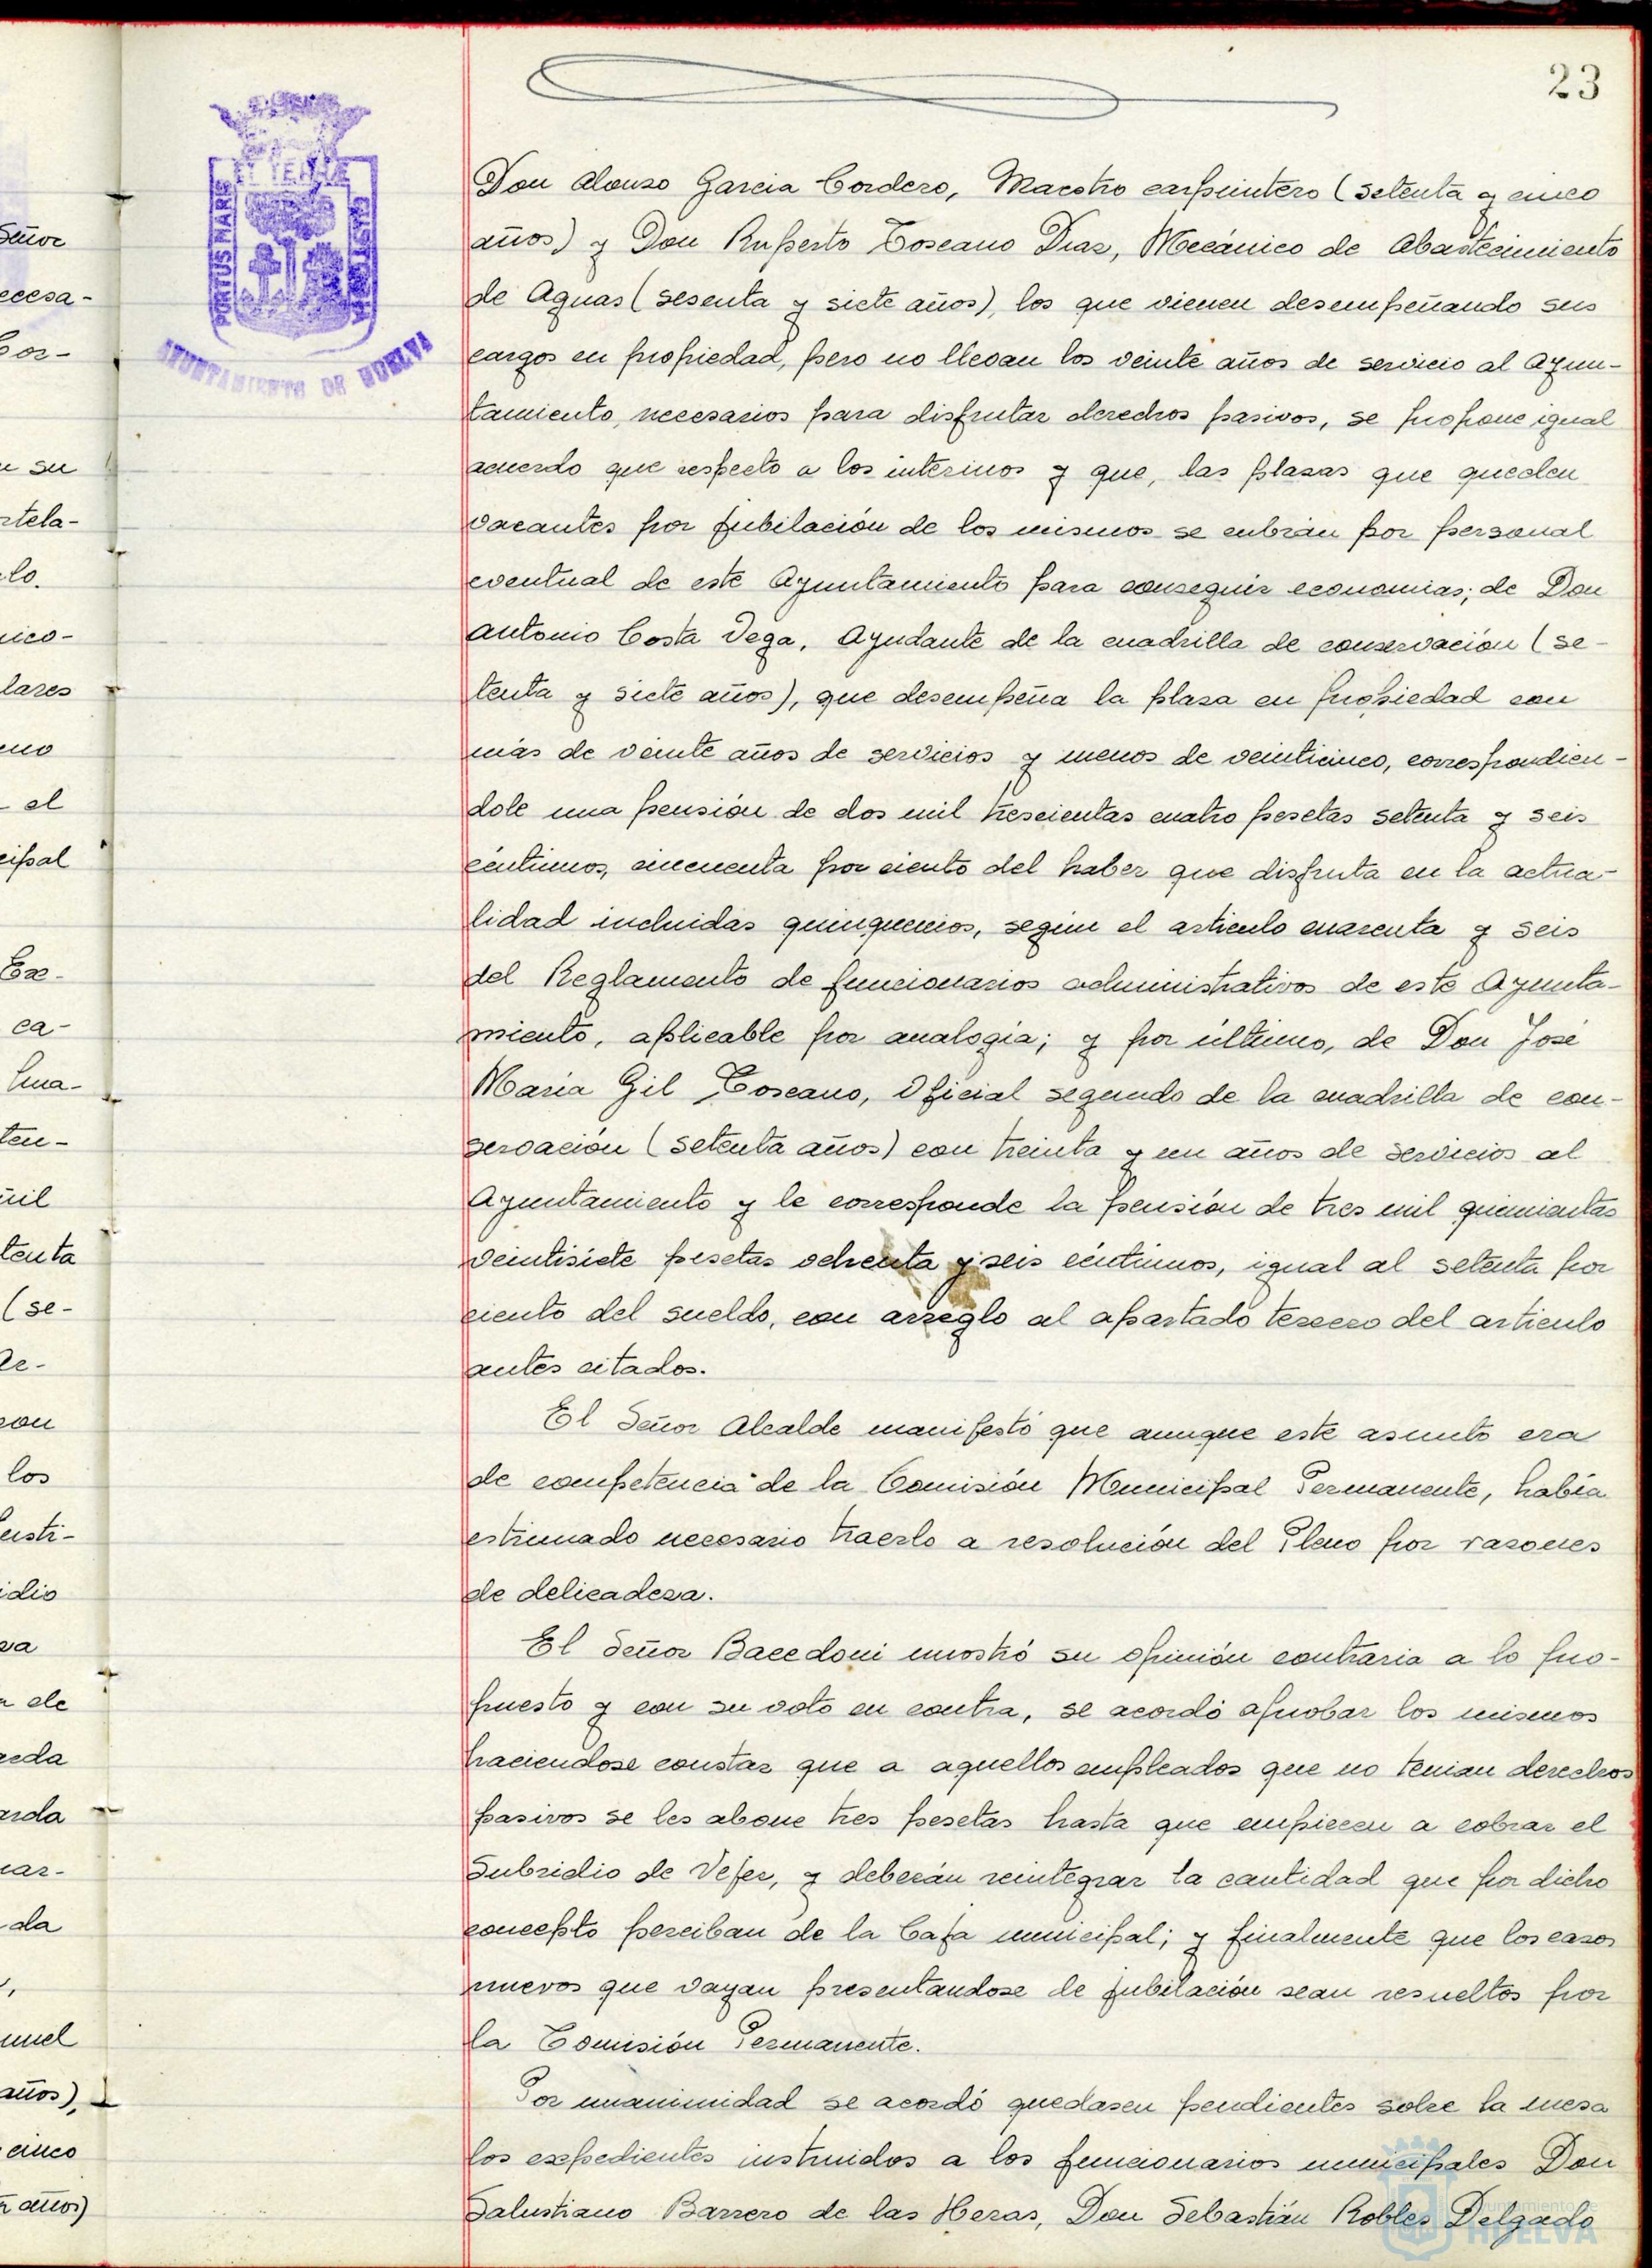 23
PORTUS MARIS
ET TERRÆ
AYUNTAMIENTO DE HUELVA
Don Alonso Garcia Cordero, Maestro carpintero (setenta y cinco
años) y Don Ruperto Toscano Diaz, Mecánico de Abastecimiento
de Aguas (sesenta y siete años), los que vienen desempeñando sus
cargos en propiedad, pero no llevan los veinte años de servicio al Ayun-
tamiento, necesarios para disfrutar derechos pasivos, se propone igual
acuerdo que respecto a los interinos y que, las plazas que queden
vacantes por jubilación de los mismos se cubrán por personal
eventual de este Ayuntamiento para conseguir economias; de Don
Antonio Costa Vega, Ayudante de la cuadrilla de conservación (se-
tenta y siete años), que desempeña la plaza en propiedad con
más de veinte años de servicios y menos de veinticinco, correspondien-
dole una pensión de dos mil trescientas cuatro pesetas setenta y seis
céntimos, cincuenta por ciento del haber que disfruta en la actua-
lidad incluidas quinquenios, según el articulo cuarenta y seis
del Reglamento de funcionarios administrativos de este Ayunta-
miento, aplicable por analogía; y por último, de Don José
María Gil Toscano, Oficial segundo de la cuadrilla de con-
servación (setenta años) con treinta y un años de servicios al
Ayuntamiento y le corresponde la pensión de tres mil quinientas
veintisiete pesetas ochenta y seis céntimos, igual al setenta por
ciento del sueldo, con arreglo al apartado tercero del articulo
antes citados.
El Señor Alcalde manifestó que aunque este asunto era
de competencia de la Comisión Municipal Permanente, había
estimado necesario traerlo a resolución del Pleno por razones
de delicadeza.
El Señor Bacedoni mostró su opinión contraria a lo pro-
puesto y con su voto en contra, se acordó aprobar los mismos
haciendose constar que a aquellos empleados que no tenian derechos
pasivos se les abone tres pesetas hasta que empiecen a cobrar el
Subsidio de Vejez, y deberán reintegrar la cantidad que por dicho
concepto perciban de la Caja municipal; y finalmente que los casos
nuevos que vayan presentandose de jubilación sean resueltos por
la Comisión Permanente.
Por unanimidad se acordó quedasen pendientes sobre la mesa
los expedientes instruidos a los funcionarios municipales Don
Salustiano Barrero de las Heras, Don Sebastián Robles Delgado
Ayuntamiento de
HUELVA